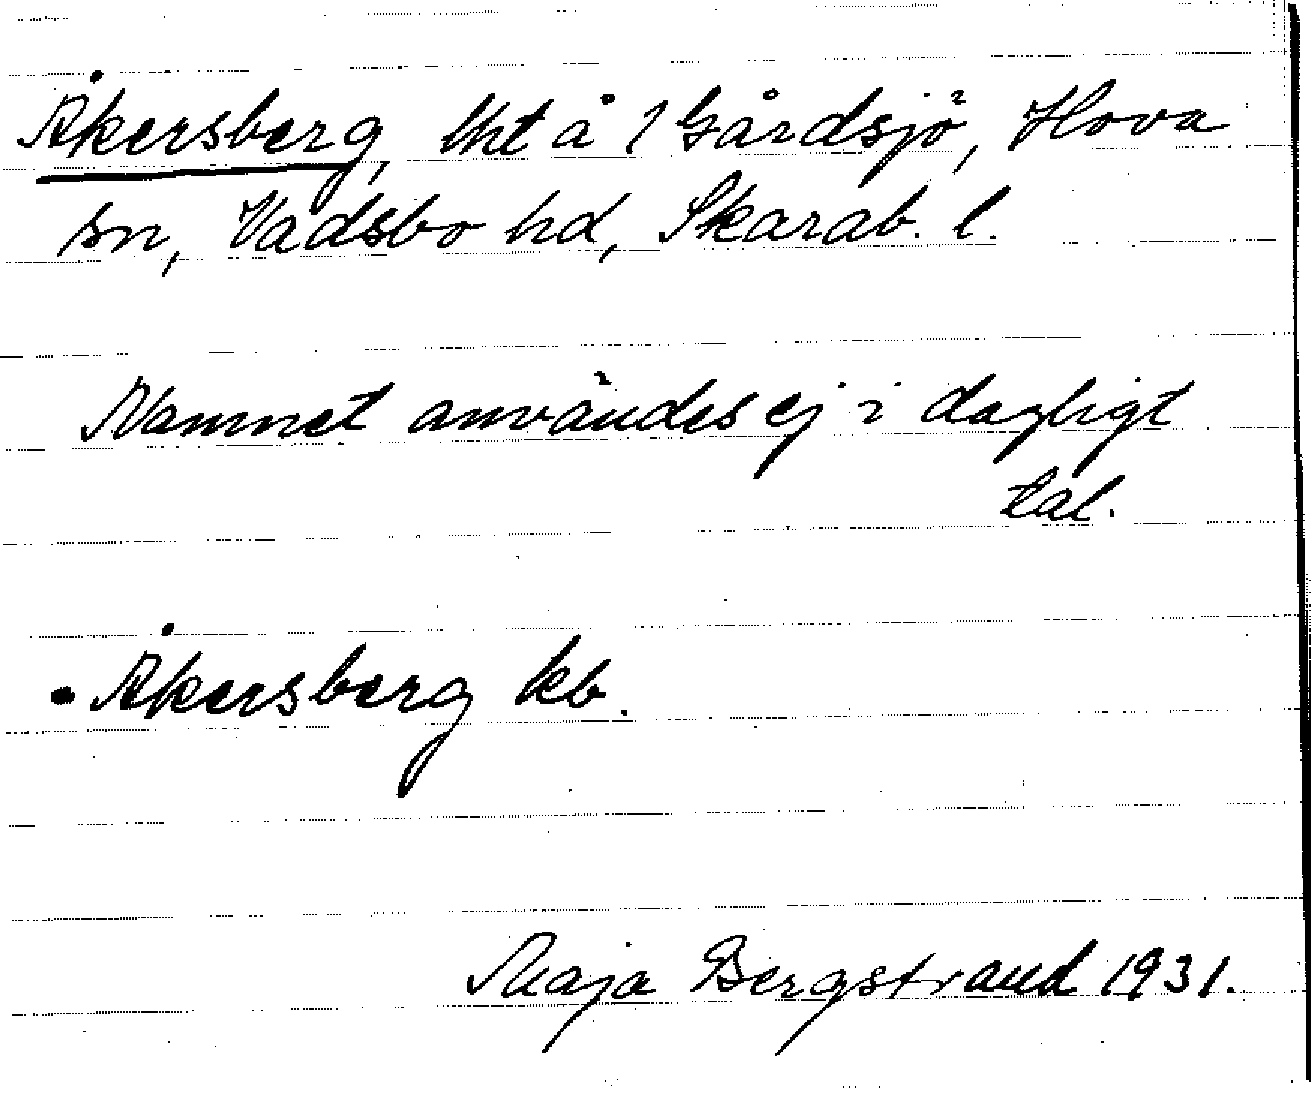 Åkersberg, lht å 1 Gårdsjö, Hova
sn, Vadsbo hd, Skarab. l.
Namnet användes ej i dagligt
tal.
• Åkersberg kb.
Maja Bergstrand 1931.